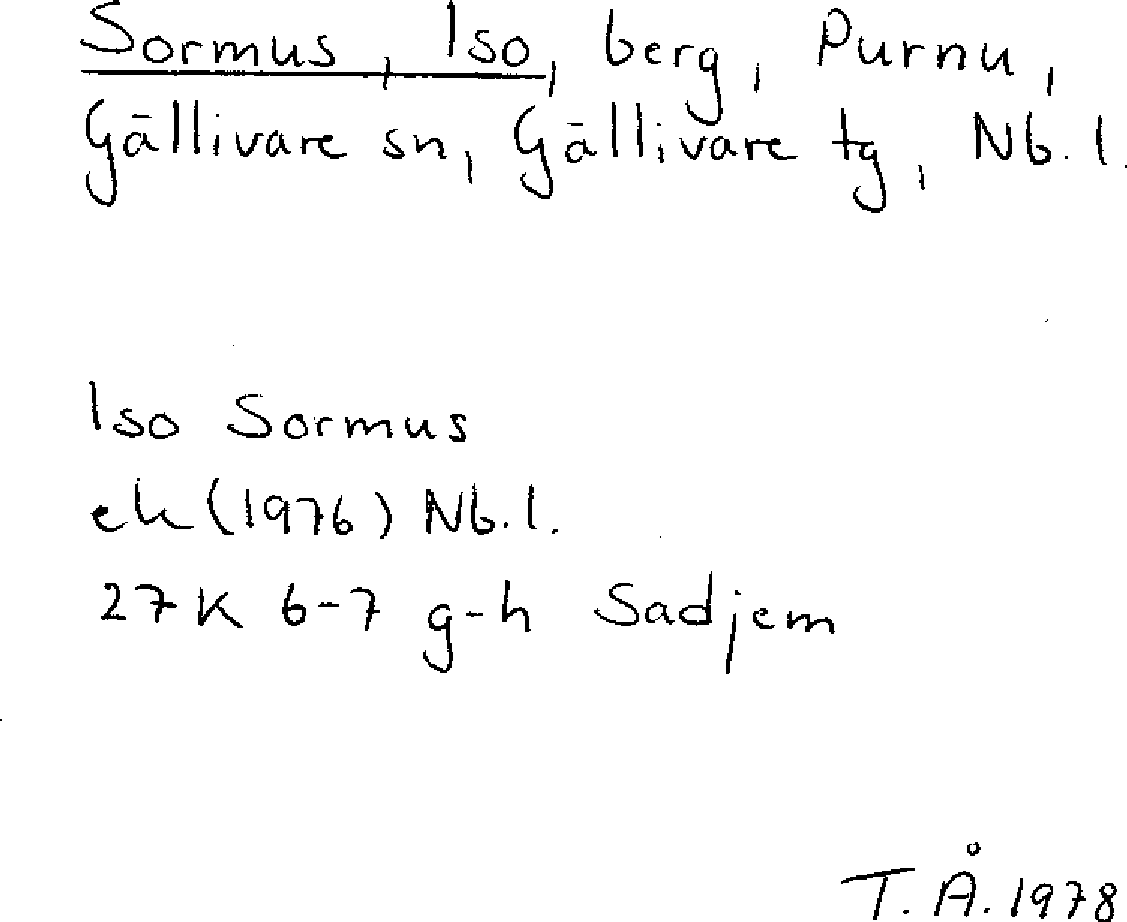 Sormus, Iso, berg, Purnu,
Gällivare sn, Gällivare tg, Nb.l.
Iso Sormus
ek (1976) Nb.l.
27K 6-7 g-h Sadjem
T.Å. 1978